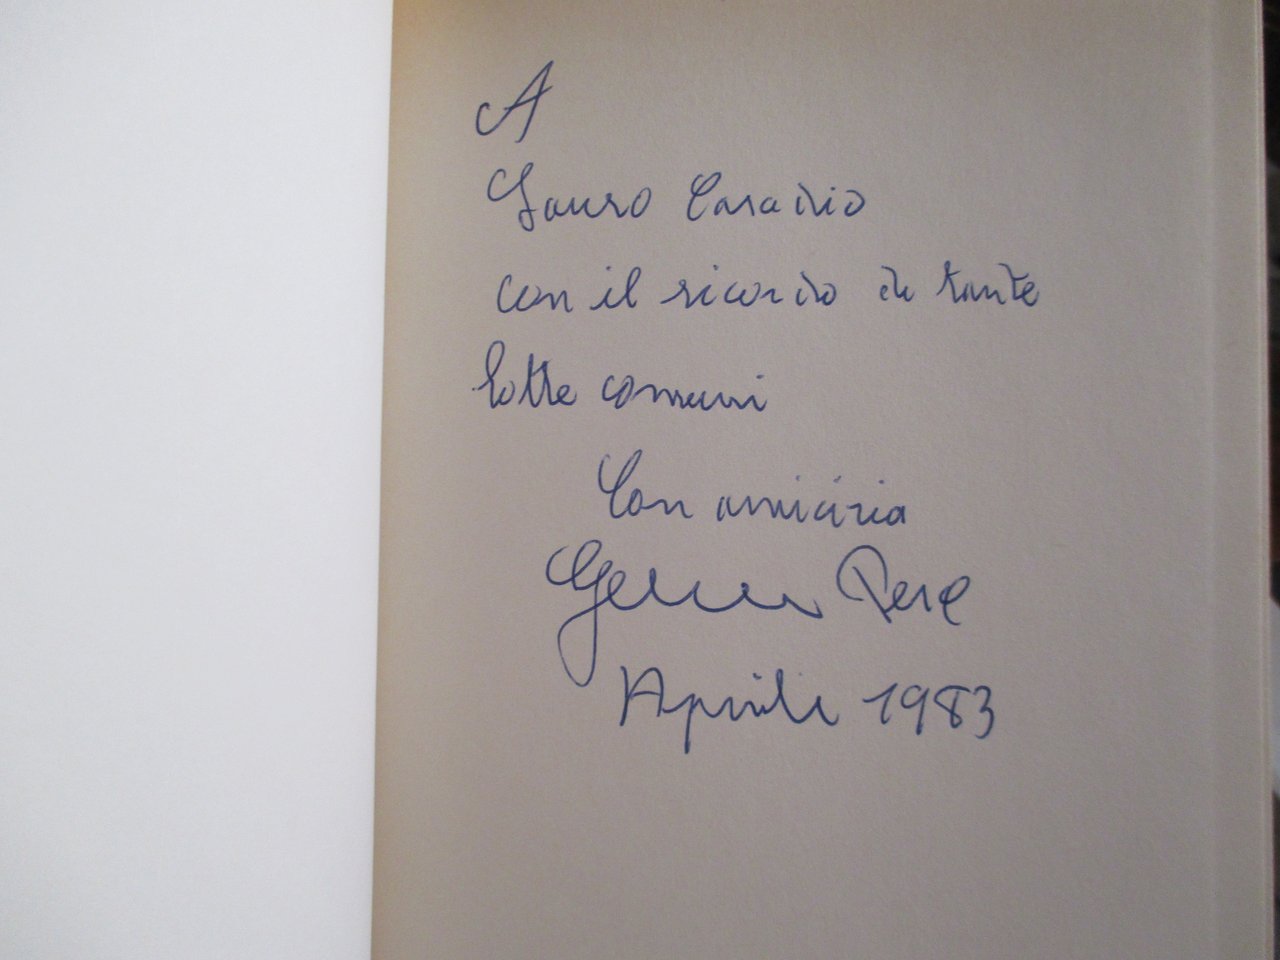 A
Lauro Casadio
con il ricordo di tante
lotte comuni
Con amicizia
Aprile 1983